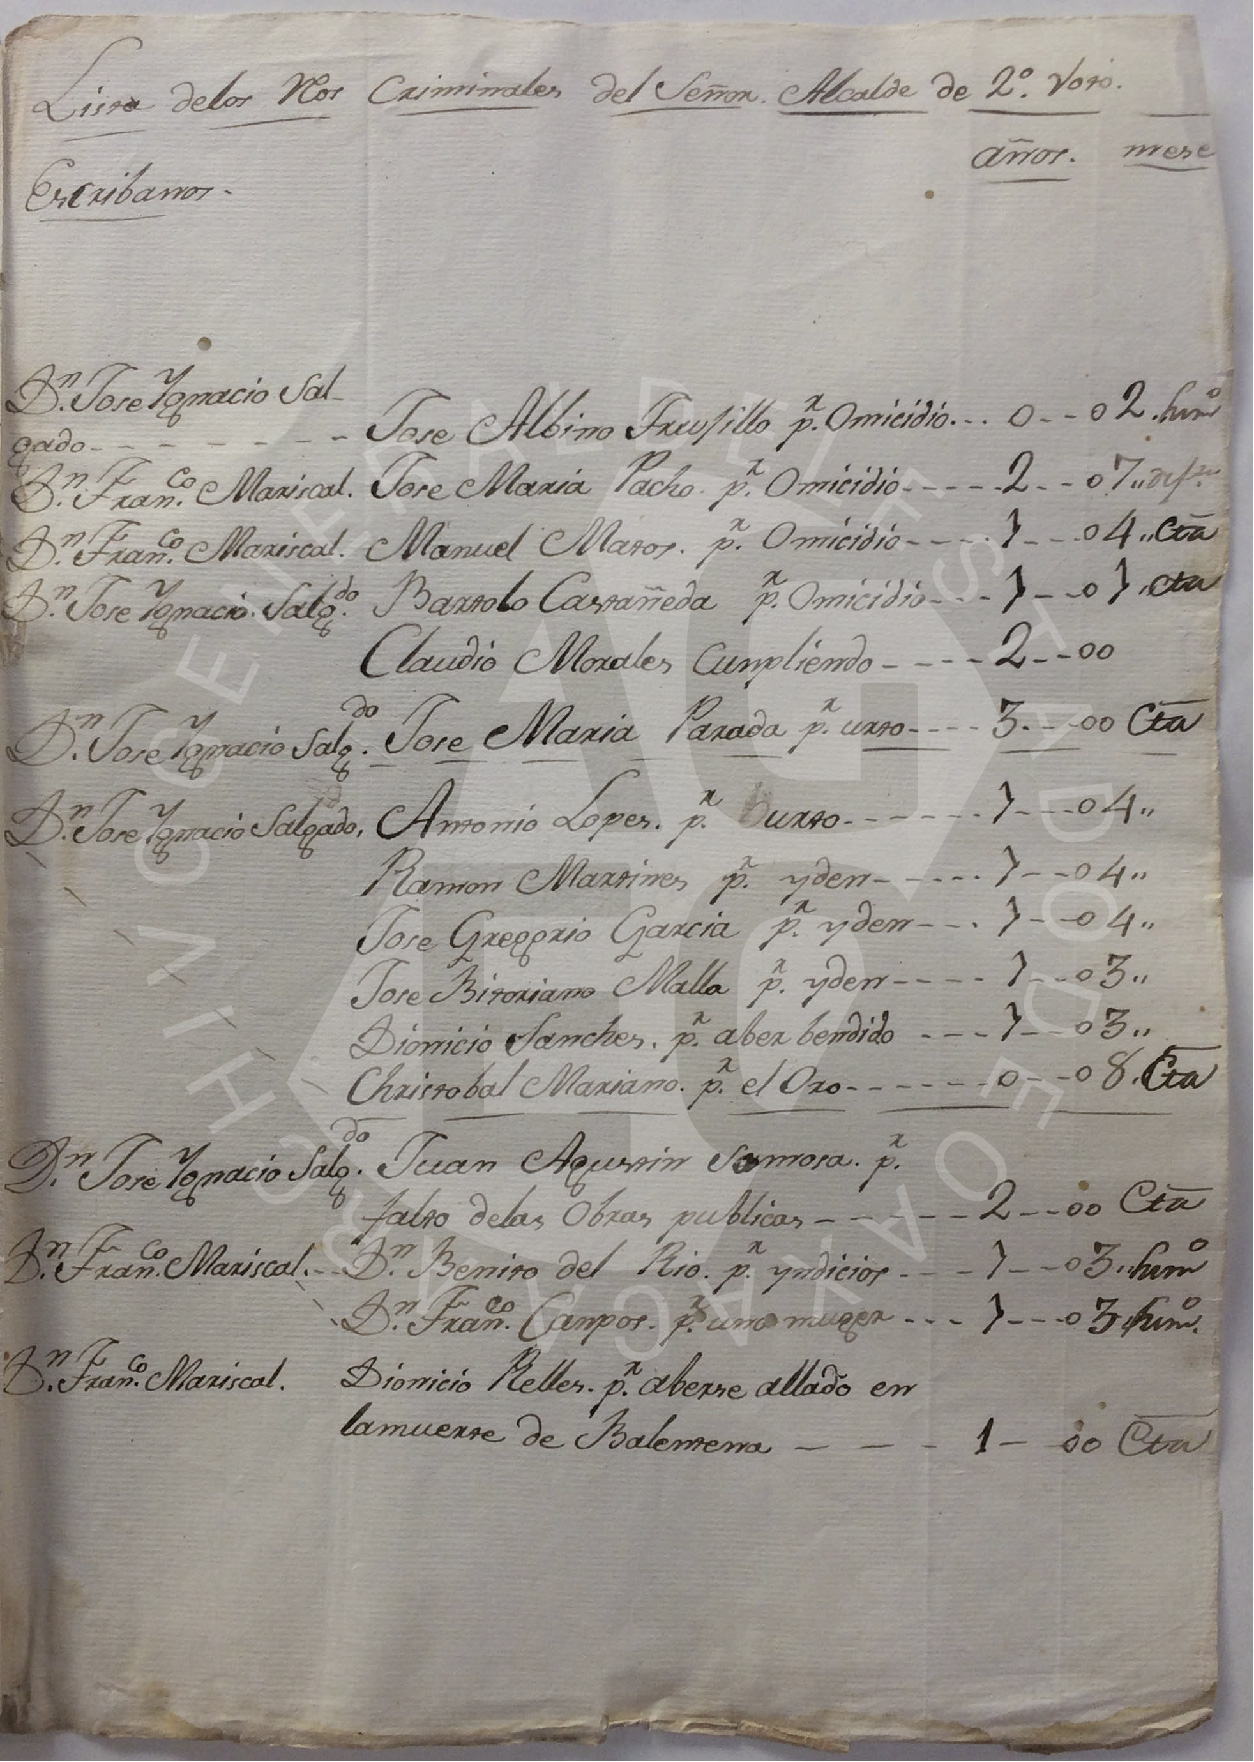 Lista delos Ros Criminales del Señor. Alcalde de 2º. Voto.
años. mese
Escribanos.
Dn. Jose Ygnacio Sal-
gado - - - - - - - - Jose Albino Truxillo pr. Omicidio... 0 - - 02. sumo
Dn. Franco. Mariscal. Jose Maria Pacho. pr. Omicidio - - - - - 2 - - 07.,
Dn. Franco. Mariscal. Manuel Matos. pr. Omicidio - - - - 1 - - - 04., Cta
Dn. Jose Ygnacio. Salgdo. Bartolo Castañeda pr. Omicidio - - - 1 - - 01., Cta
Claudio Morales Cunpliendo - - - - 2 - - 00
Dn. Jose Ygnacio Salgdo. Jose Maria Parada pr. urto - - - - 3 - - - 00 Cta
Dn. Jose Ygnacio Salgado, Antonio Lopes. pr. urto - - - - - - - 1 - - - 04.,
Ramon Martines pr. yden - - - - - - 1 - - 04.,
Jose Greggrio Garcia pr. yden - - - . 1 - - 04.,
Jose Bitoriano Malla pr. yden - - - - 1 - - 03.,
Dionicio Sanches. pr. aber bendido - - - 1 - - 03.,
Christobal Mariano. pr. el Oro - - - - - - 0 - - 08. Cta
Dn. Jose Ygnacio Salgdo. Juan Agustin Somosa. pr.
falto delas Obras publicas - - - - - - 2 - - 00 Cta
Dn. Franco. Mariscal. - - Dn. Benito del Rio. pr. yndicios - - - - 1 - - 03., sumo
Dn. Franco. Canpos. pr. una muger - - - 1 - - - 03. sumo.
Dn. Franco. Mariscal. Dionicio Relles. pr. aberse allado en
lamuerte de Balentena - - - - 1 - 00 Cta
ARCHIVO GENERAL DEL ESTADO DE OAXACA